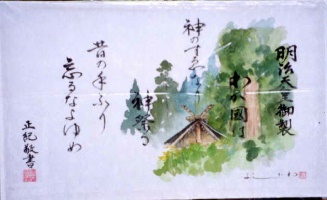 明治天皇御製
わが國は
神のすゑなり
神祭る
昔の手ふり
忘るなよゆめ
正紀敬書